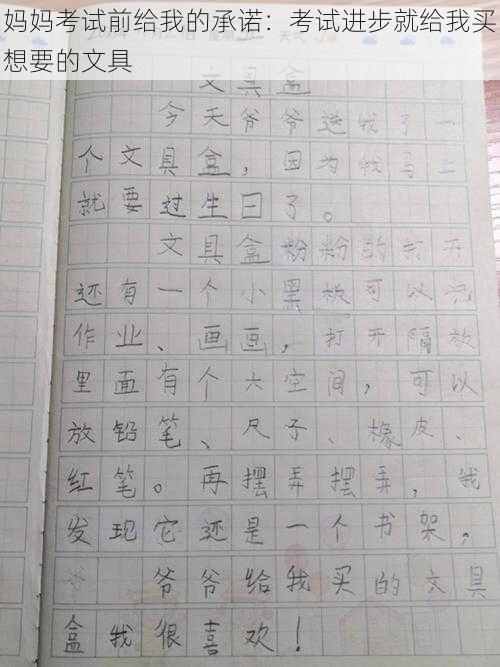 妈妈考试前给我的承诺：考试进步就给我买
想要的文具
文具盒
今天爷爷送我了一
个文具盒，因为我马上
就要过生日了。
文具盒粉粉的打开
还有一个小黑板可以记
作业、画画，打开隔放
里面有个大空间，可以
放铅笔、尺子、橡皮、
红笔。再摆弄摆弄，我
发现它还是一个书架，
爷爷给我买的文具
盒我很喜欢！